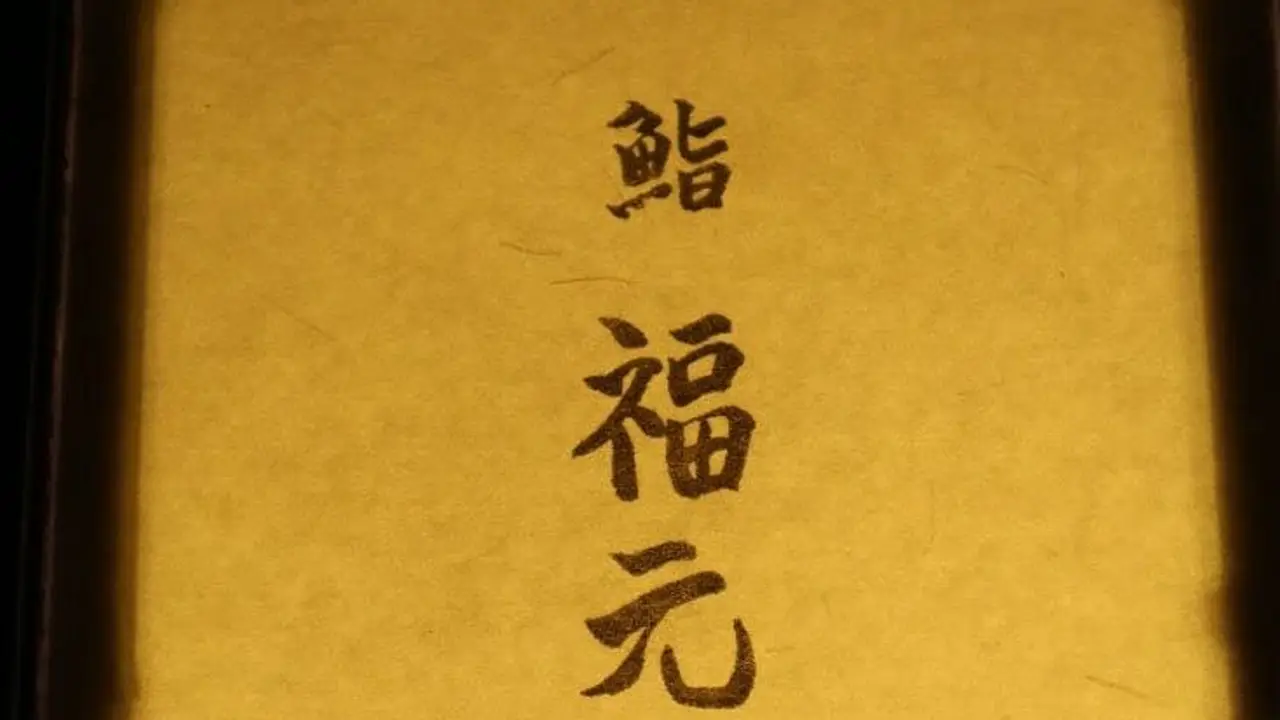 鮨
福元